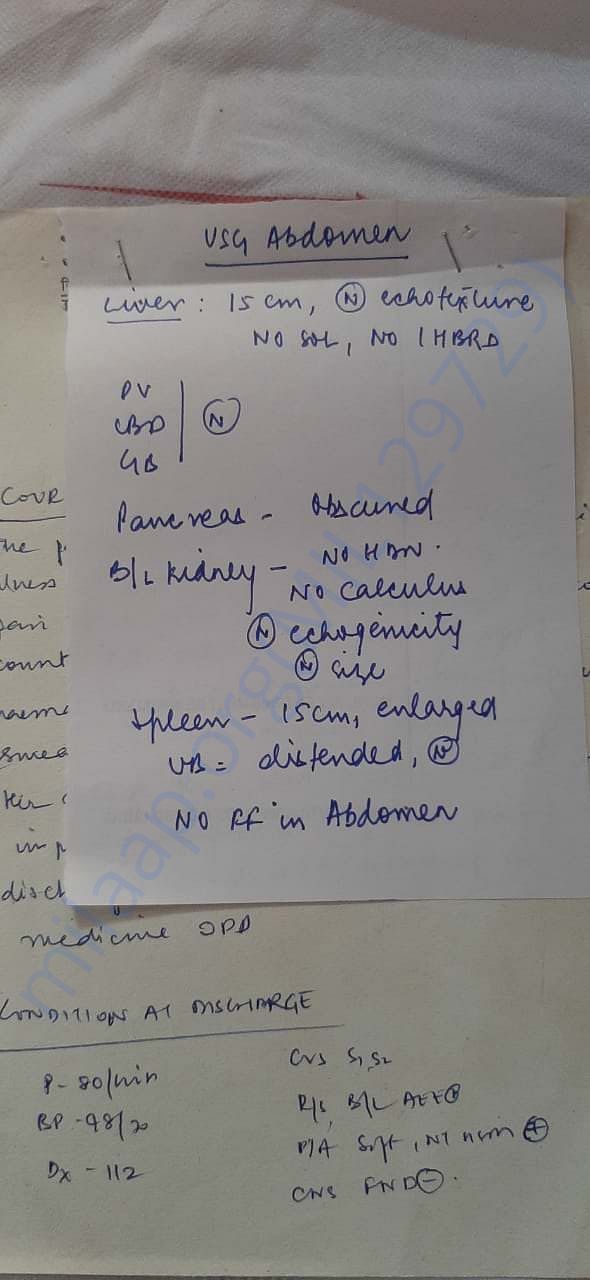 USG Abdomen
Liver : 15 cm, Ⓝ echotexture
NO SOL, NO IHBRD
PV
CBD Ⓝ
GB
Pancreas - Obscured
B/L Kidney - NO HDN.
NO Calculus
Ⓝ echogenicity
Ⓝ size
Spleen - 15cm, enlarged
UB = distended, Ⓝ
NO FF in Abdomen
COUR
the p
lness
pain
count
smea
in p
disch
medicine OPD
CONDITION AT DISCHARGE
P - 80/min
BP - 98/70
Dx - 112
CVS S1S2
R/S, B/L AEE⊕
P/A Soft, NT ⊕
CNS FND⊖.
milaap.org(MIL1297291)